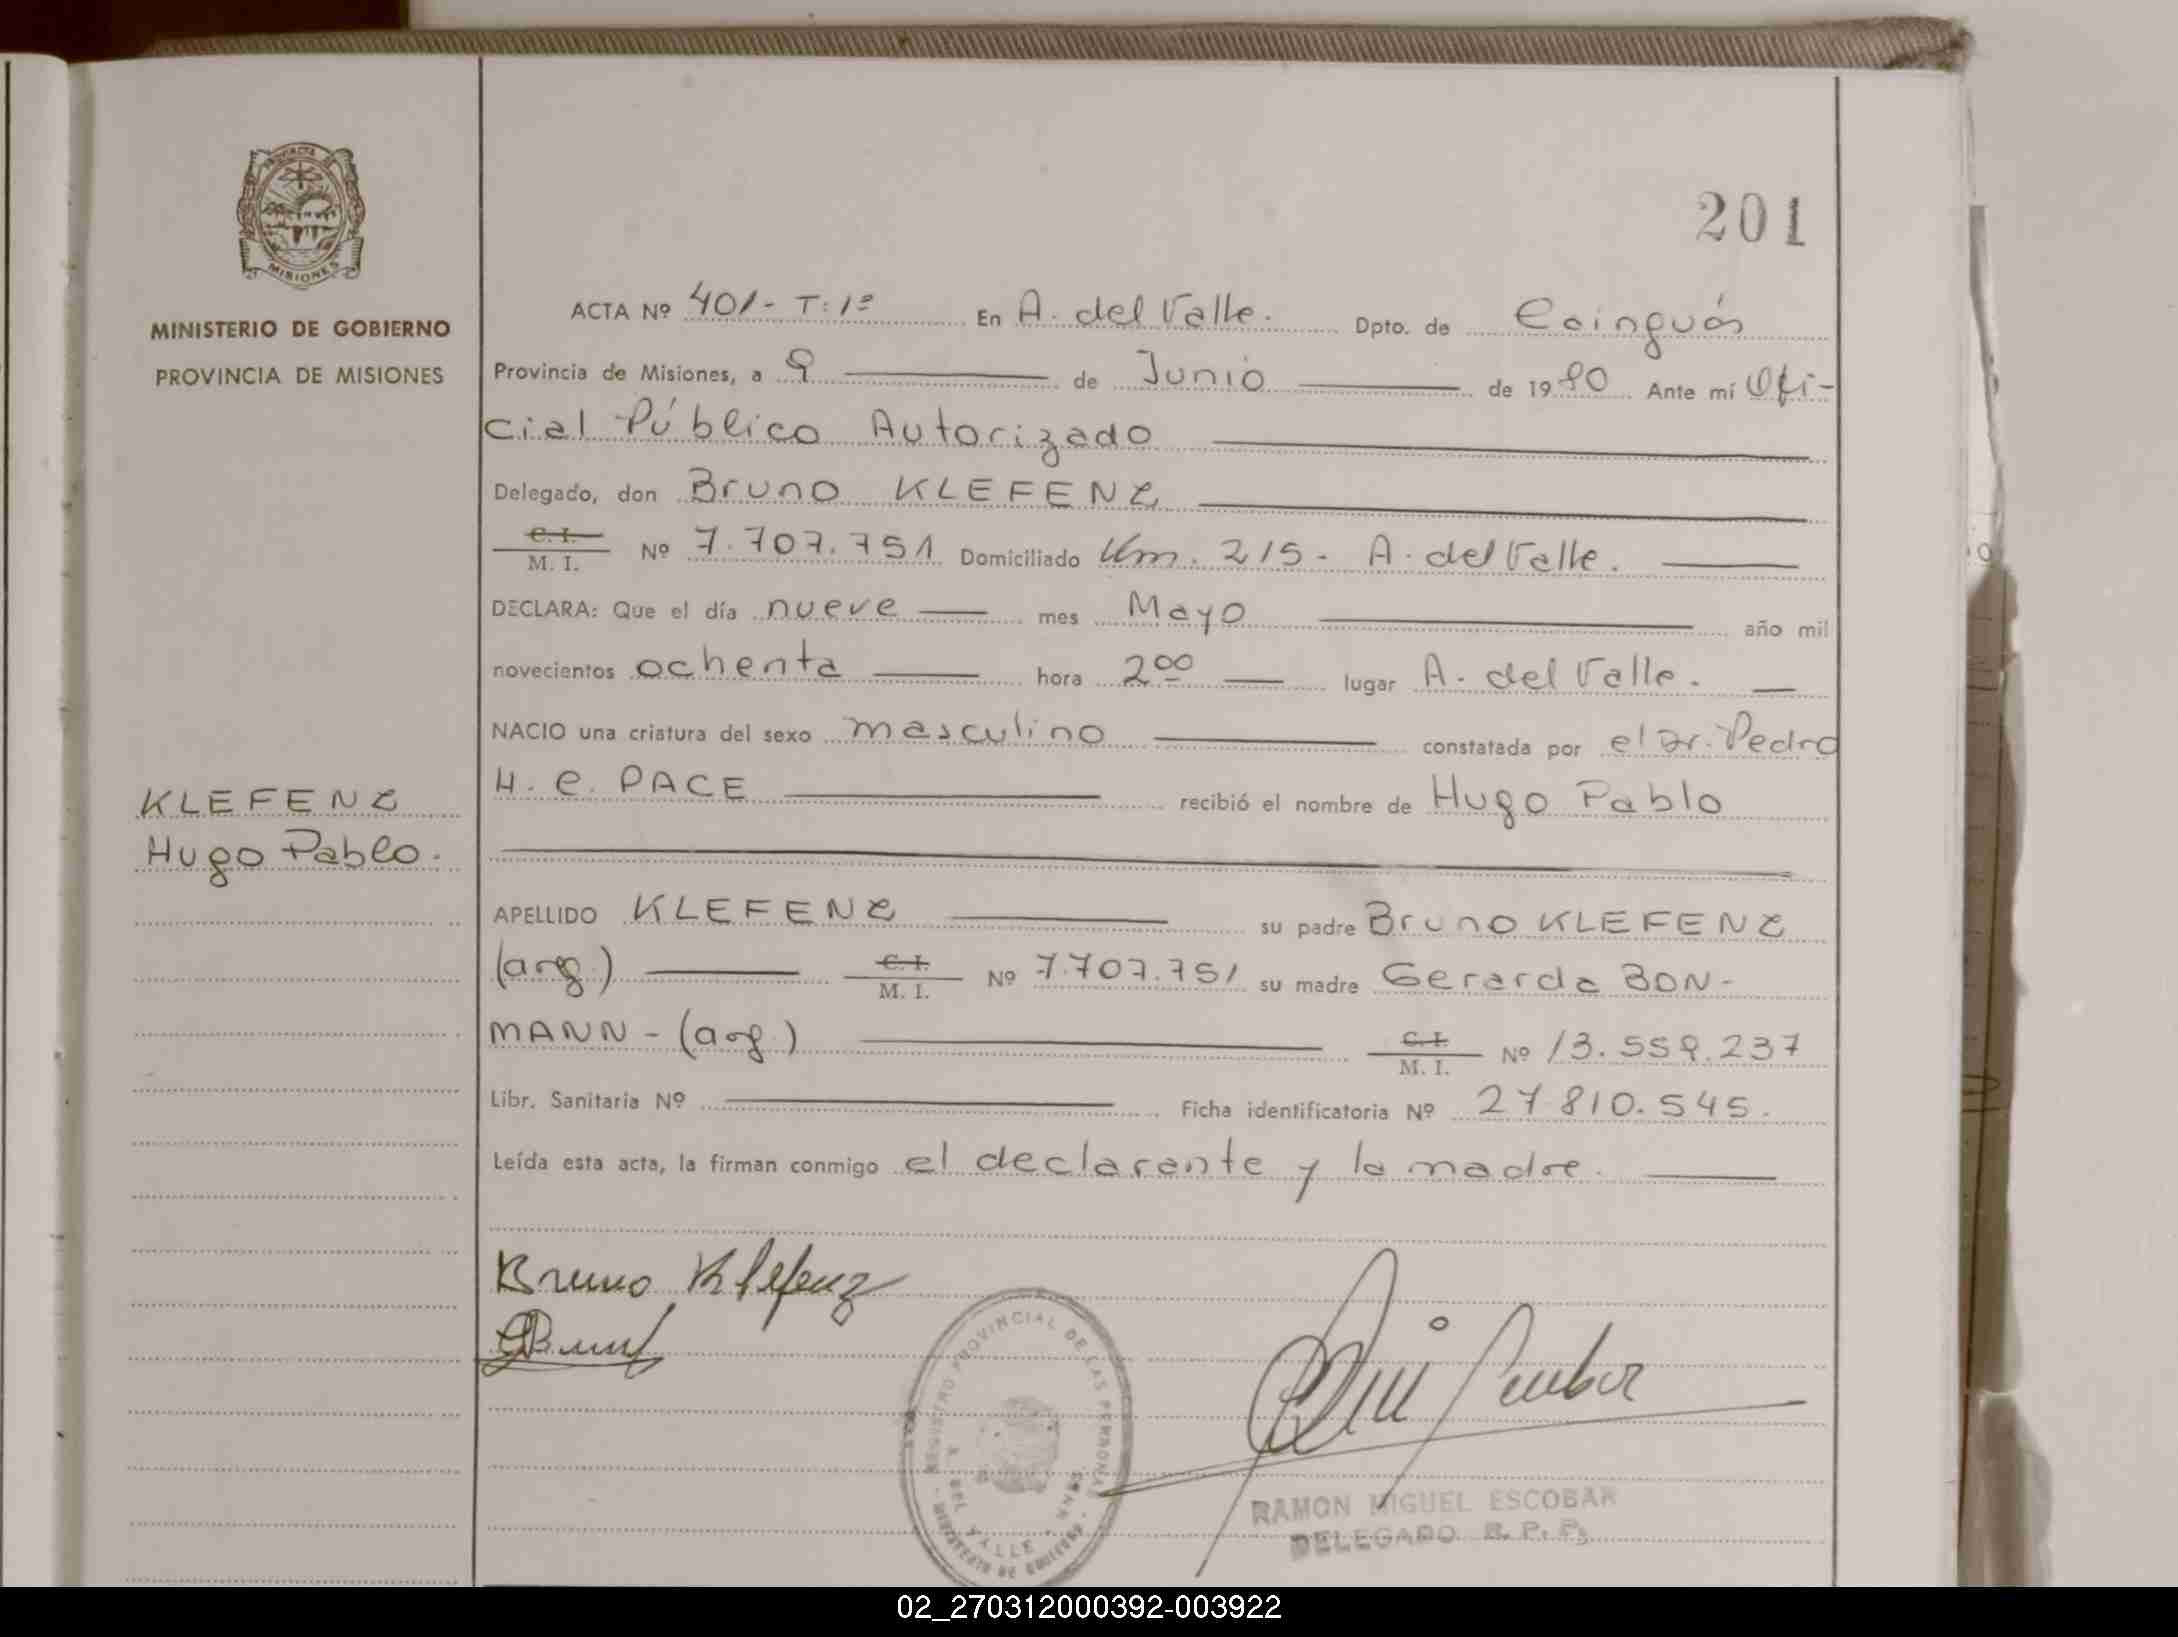 PROVINCIA DE
MISIONES
MINISTERIO DE GOBIERNO
PROVINCIA DE MISIONES
KLEFENZ
Hugo Pablo.
201
ACTA Nº 401- T: 1º En A. del Valle. Dpto. de Cainguás
Provincia de Misiones, a 9 de Junio de 1980 Ante mí Ofi-
cial Público Autorizado
Delegado, don Bruno KLEFENZ
C. I.
M. I. Nº 7.707.751 Domiciliado Km. 215- A. del Valle.
DECLARA: Que el día nueve mes Mayo año mil
novecientos ochenta hora 2 00 lugar A. del Valle.
NACIO una criatura del sexo masculino constatada por el Dr. Pedro
H. C. PACE recibió el nombre de Hugo Pablo
APELLIDO KLEFENZ su padre Bruno KLEFENZ
(arg.) C. I. M. I. Nº 7.707.751 su madre Gerarda BON-
MANN - (arg.) C. I. M. I. Nº 13.559.237
Libr. Sanitaria Nº Ficha identificatoria Nº 27 810.545.
Leída esta acta, la firman conmigo el declarante y la madre.
Bruno Klefenz
REGISTRO PROVINCIAL DE LAS PERSONAS
A. DEL VALLE
MINISTERIO DE GOBIERNO
RAMON MIGUEL ESCOBAR
DELEGADO R. P. P.
02_270312000392-003922